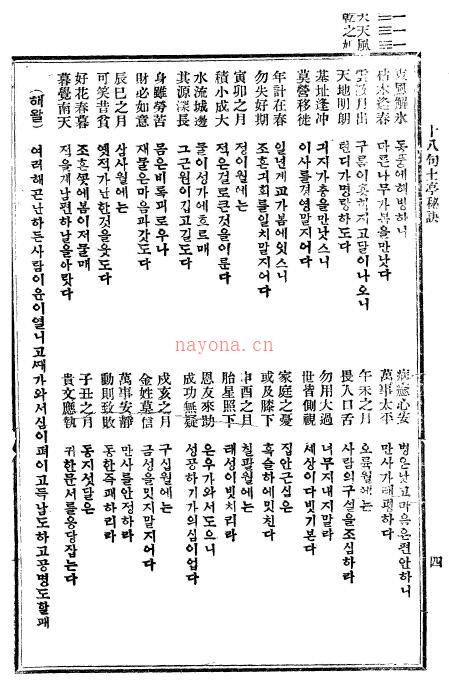 大天風
乾之姤
十八句土亭秘訣
東風解氷 동풍에해빙하니
枯木逢春 마른나무가봄을만낫다
雲散月出 구름이흣허지고달이나오니
天地明朗 텬디가명랑하도다
基址逢冲 긔지가충을만낫스니
莫營移徙 이사를경영말지어다
年計在春 일년계교가봄에잇스니
勿失好期 조흔긔회를일치말지어다
寅卯之月 정이월에는
積小成大 적은걸로큰것을이룬다
水流城邊 물이성가에흐르매
其源深長 그근원이깁고길도다
身雖勞苦 몸은비록괴로우나
財必如意 재물은마음과갓도다
辰巳之月 삼사월에는
可笑昔貧 옛적가난한것을웃도다
好花春暮 조흔꽃에봄이저물매
暮覺南天 저물게남편하날을아랏다
病癒心安 병은낫고마음은편안하니
萬事太平 만사가태평하다
午未之月 오륙월에는
畏人口舌 사람의구설을조심하라
勿用大過 너무지내지말라
世皆側視 세상이다빗기본다
家庭之憂 집안근심은
或及膝下 혹슬하에밋친다
申酉之月 칠팔월에는
胎星照下 태성이빗치리라
恩友來助 은우가와서도으니
成功無疑 성공하기가의심이업다
戌亥之月 구십월에는
金姓莫信 금성을밋지말지어다
萬事安靜 만사를안정하라
動則致敗 동한즉패하리라
子丑之月 동지섯달은
貴文應執 귀한문서를응당잡는다
(해왈) 여러해곤난하든사람이운이열니고때가와서심이펴이고득남도하고공명도할괘
四
nayona.cn